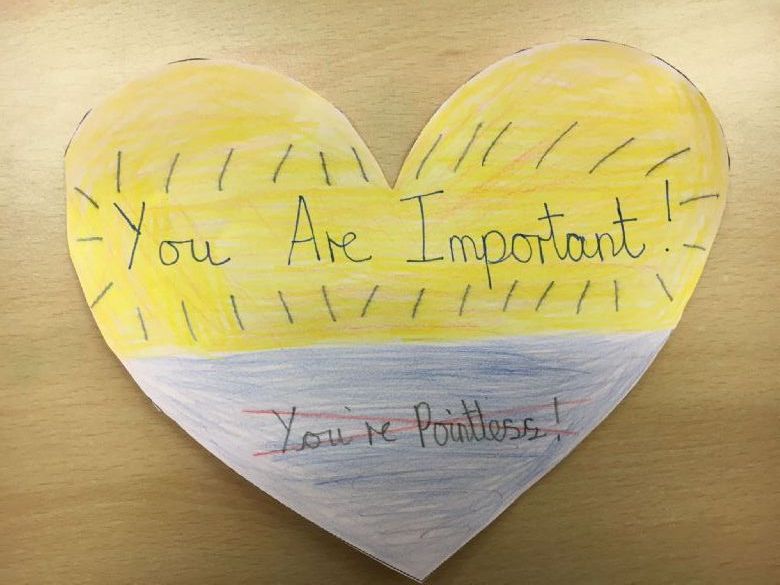 You Are Important!
You're Pointless!